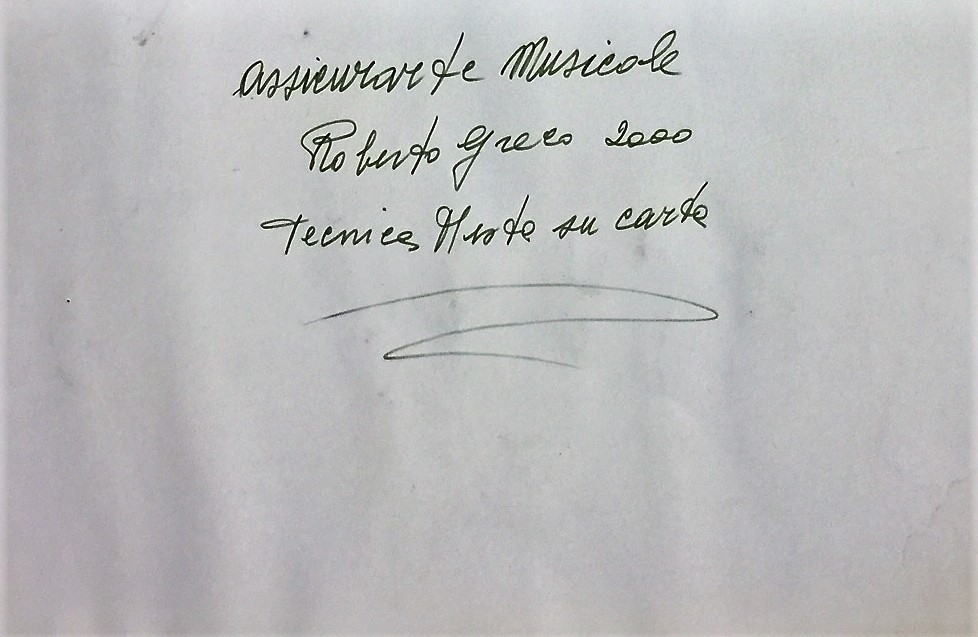 Assicurarte Musicale
Roberto Greco 2000
Tecnica Mista su carta